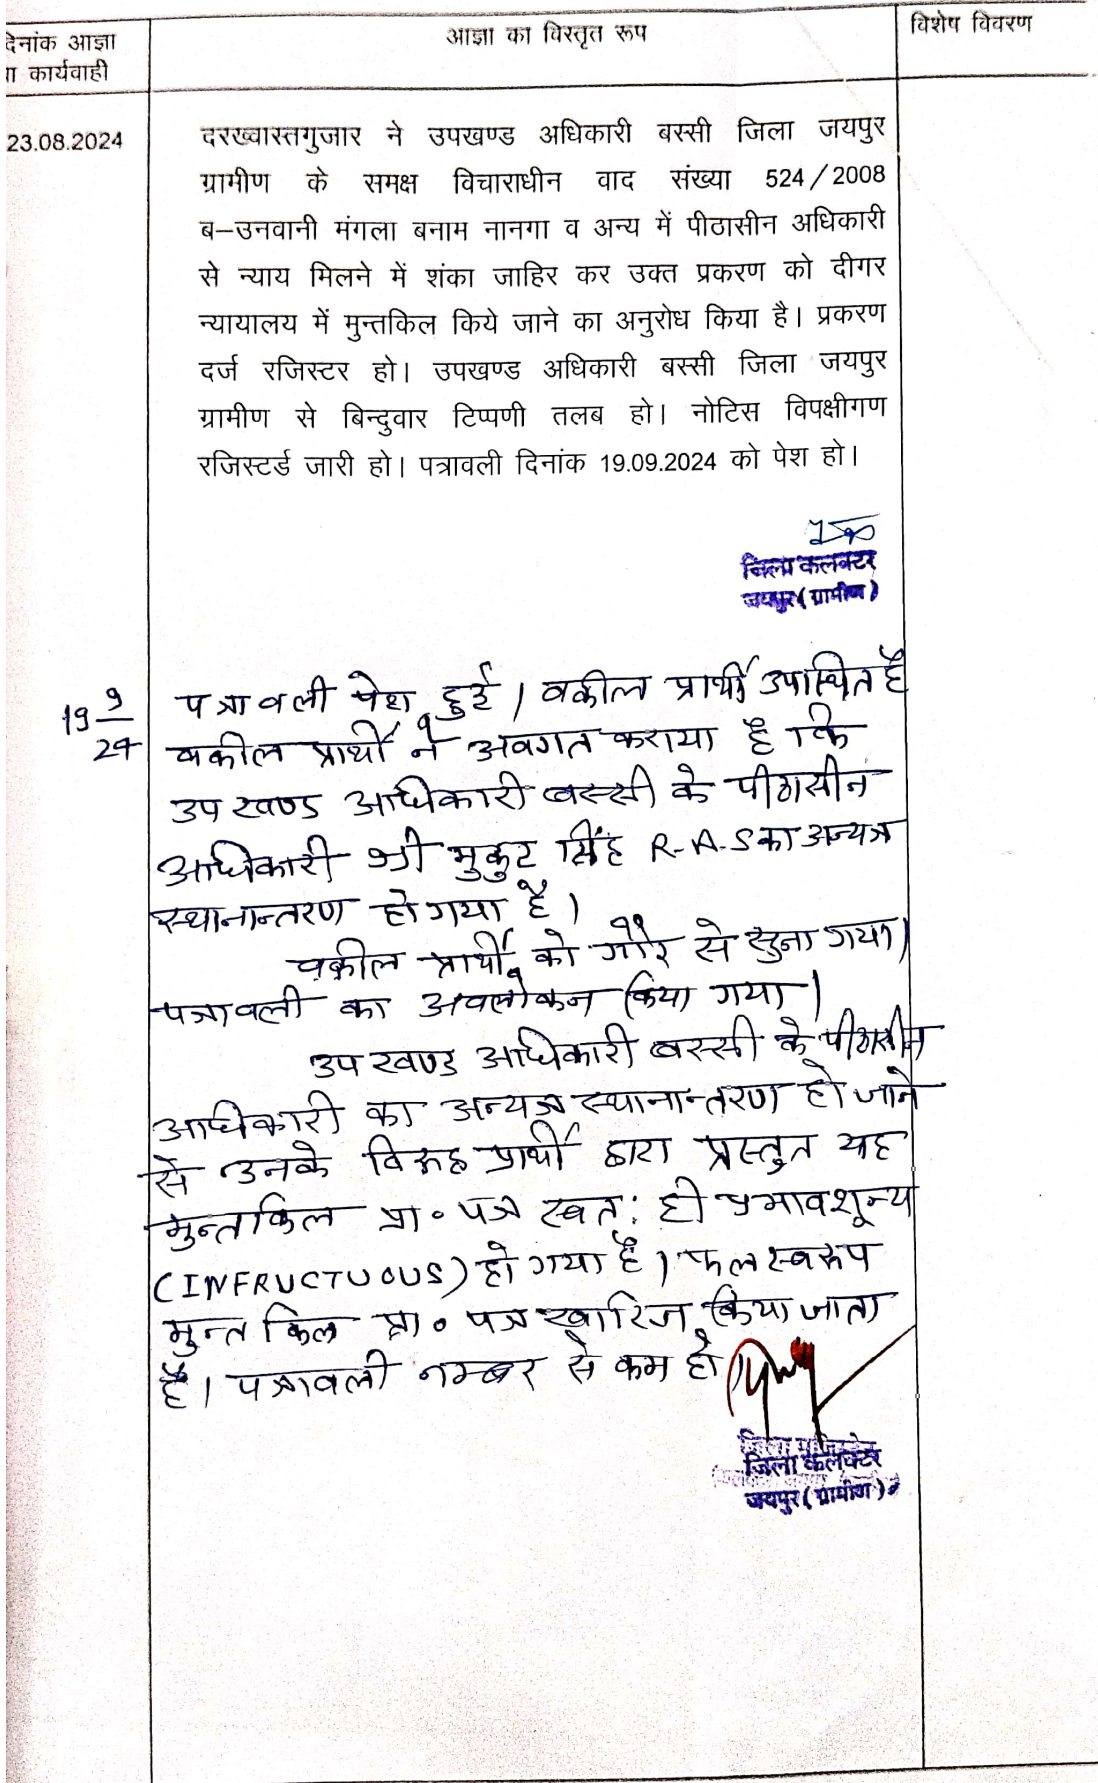 दिनांक आज्ञा
या कार्यवाही
आज्ञा का विस्तृत रूप
विशेष विवरण
23.08.2024
दरख्वास्तगुजार ने उपखण्ड अधिकारी बस्सी जिला जयपुर
ग्रामीण के समक्ष विचाराधीन वाद संख्या 524/2008
ब–उनवानी मंगला बनाम नानगा व अन्य में पीठासीन अधिकारी
से न्याय मिलने में शंका जाहिर कर उक्त प्रकरण को दीगर
न्यायालय में मुन्तकिल किये जाने का अनुरोध किया है। प्रकरण
दर्ज रजिस्टर हो। उपखण्ड अधिकारी बस्सी जिला जयपुर
ग्रामीण से बिन्दुवार टिप्पणी तलब हो। नोटिस विपक्षीगण
रजिस्टर्ड जारी हो। पत्रावली दिनांक 19.09.2024 को पेश हो।
जिला कलक्टर
जयपुर (ग्रामीण)
19 9/24
पत्रावली पेश हुई। वकील प्रार्थी उपास्थित है
वकील प्रार्थी ने अवगत कराया है कि
उप खण्ड अधिकारी बस्सी के पीठासीन
अधिकारी श्री मुकुट सिंह R-A-S का अन्यत्र
स्थानान्तरण हो गया है।
वकील प्रार्थी को गौर से सुना गया।
पत्रावली का अवलोकन किया गया।
उप खण्ड अधिकारी बस्सी के पीठासीन
अधिकारी का अन्यत्र स्थानान्तरण हो जाने
से उनके विरूद्ध प्रार्थी द्वारा प्रस्तुत यह
मुन्तकिल प्रा॰ पत्र स्वत: ही प्रभावशून्य
(INFRUCTUOUS) हो गया है। फलस्वरूप
मुन्तकिल प्रा॰ पत्र खारिज किया जाता
है। पत्रावली नम्बर से कम हो।
जिला कलक्टर
जयपुर (ग्रामीण)